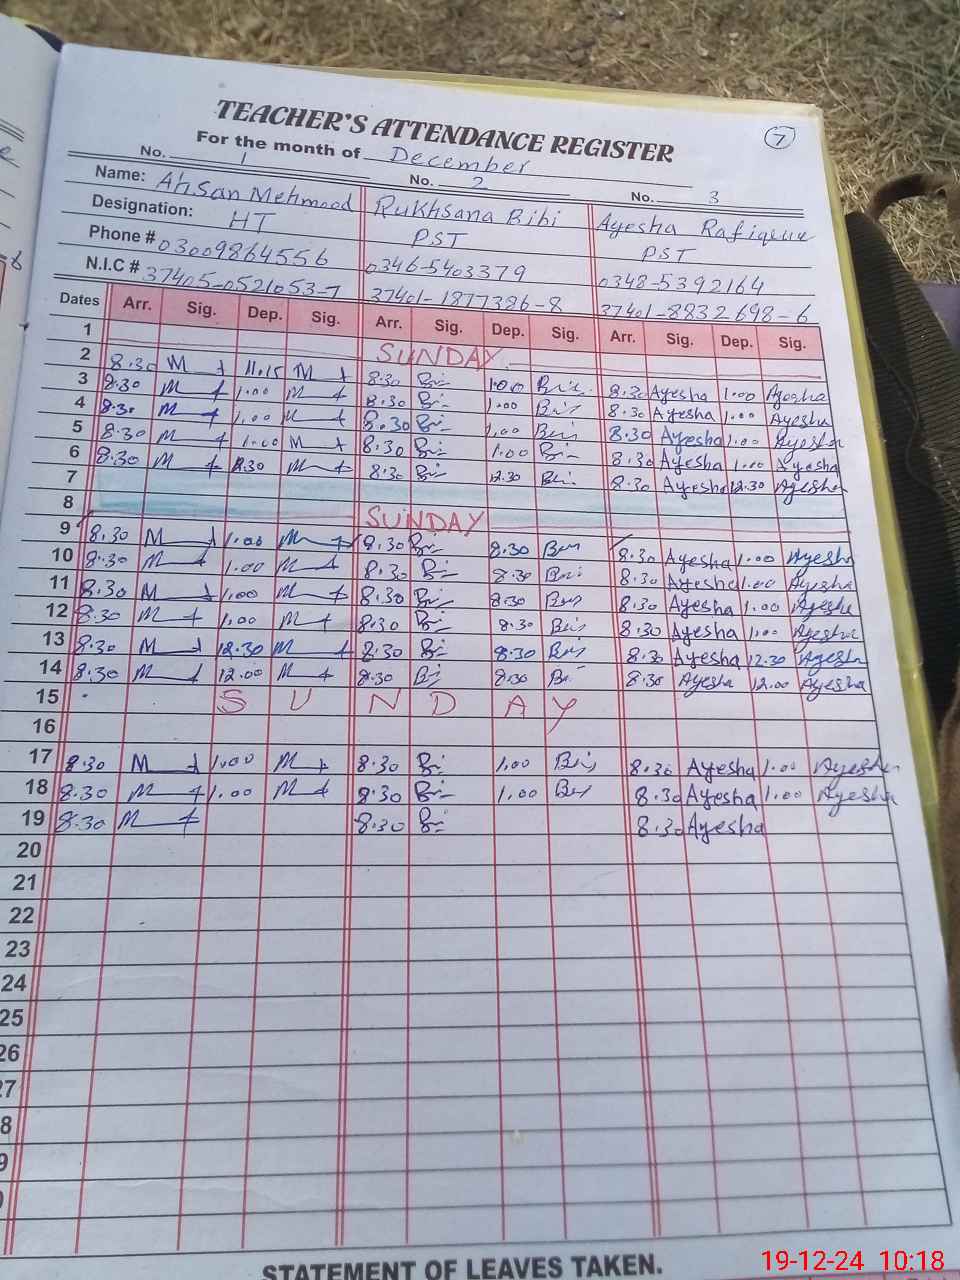 TEACHER'S ATTENDANCE REGISTER
7
For the month of December
No. 1 No. 2 No. 3
Name: Ahsan Mehmood Rukhsana Bibi Ayesha Rafique
Designation: HT PST PST
Phone # 03009864556 0346-5403379 0348-5392164
N.I.C # 37405-0521053-7 37401-1877386-8 37401-8832698-6
Dates Arr. Sig. Dep. Sig. Arr. Sig. Dep. Sig. Arr. Sig. Dep. Sig.
1 SUNDAY
2 8:30 M 11.15 M 8:30 1.00 8:30 Ayesha 1.00 Ayesha
3 8:30 M 1.00 M 8:30 1.00 8:30 Ayesha 1.00 Ayesha
4 8:30 M 1.00 M 8:30 1.00 8:30 Ayesha 1.00 Ayesha
5 8:30 M 1.00 M 8:30 1.00 8:30 Ayesha 1.00 Ayesha
6 8:30 M M 8:30 12.30 8:30 Ayesha 12.30 Ayesha
7
8 SUNDAY
9 8:30 M 1.00 M 8:30 8:30 8:30 Ayesha 1.00 Ayesha
10 8:30 M 1.00 M 8:30 8:30 8:30 Ayesha 1.00 Ayesha
11 8:30 M 1.00 M 8:30 8:30 8:30 Ayesha 1.00 Ayesha
12 8:30 M 1.00 M 8:30 8:30 8:30 Ayesha 1.00 Ayesha
13 8:30 M 12.30 M 8:30 8:30 8:30 Ayesha 12.30 Ayesha
14 8:30 M 12.00 M 8:30 8:30 8:30 Ayesha 12.00 Ayesha
15 SUNDAY
16
17 8:30 M 1.00 M 8:30 1.00 8:30 Ayesha 1.00 Ayesha
18 8:30 M 1.00 M 8:30 1.00 8:30 Ayesha 1.00 Ayesha
19 8:30 M 8:30 8:30 Ayesha
20
21
22
23
24
25
26
27
8
9
STATEMENT OF LEAVES TAKEN.
19-12-24 10:18